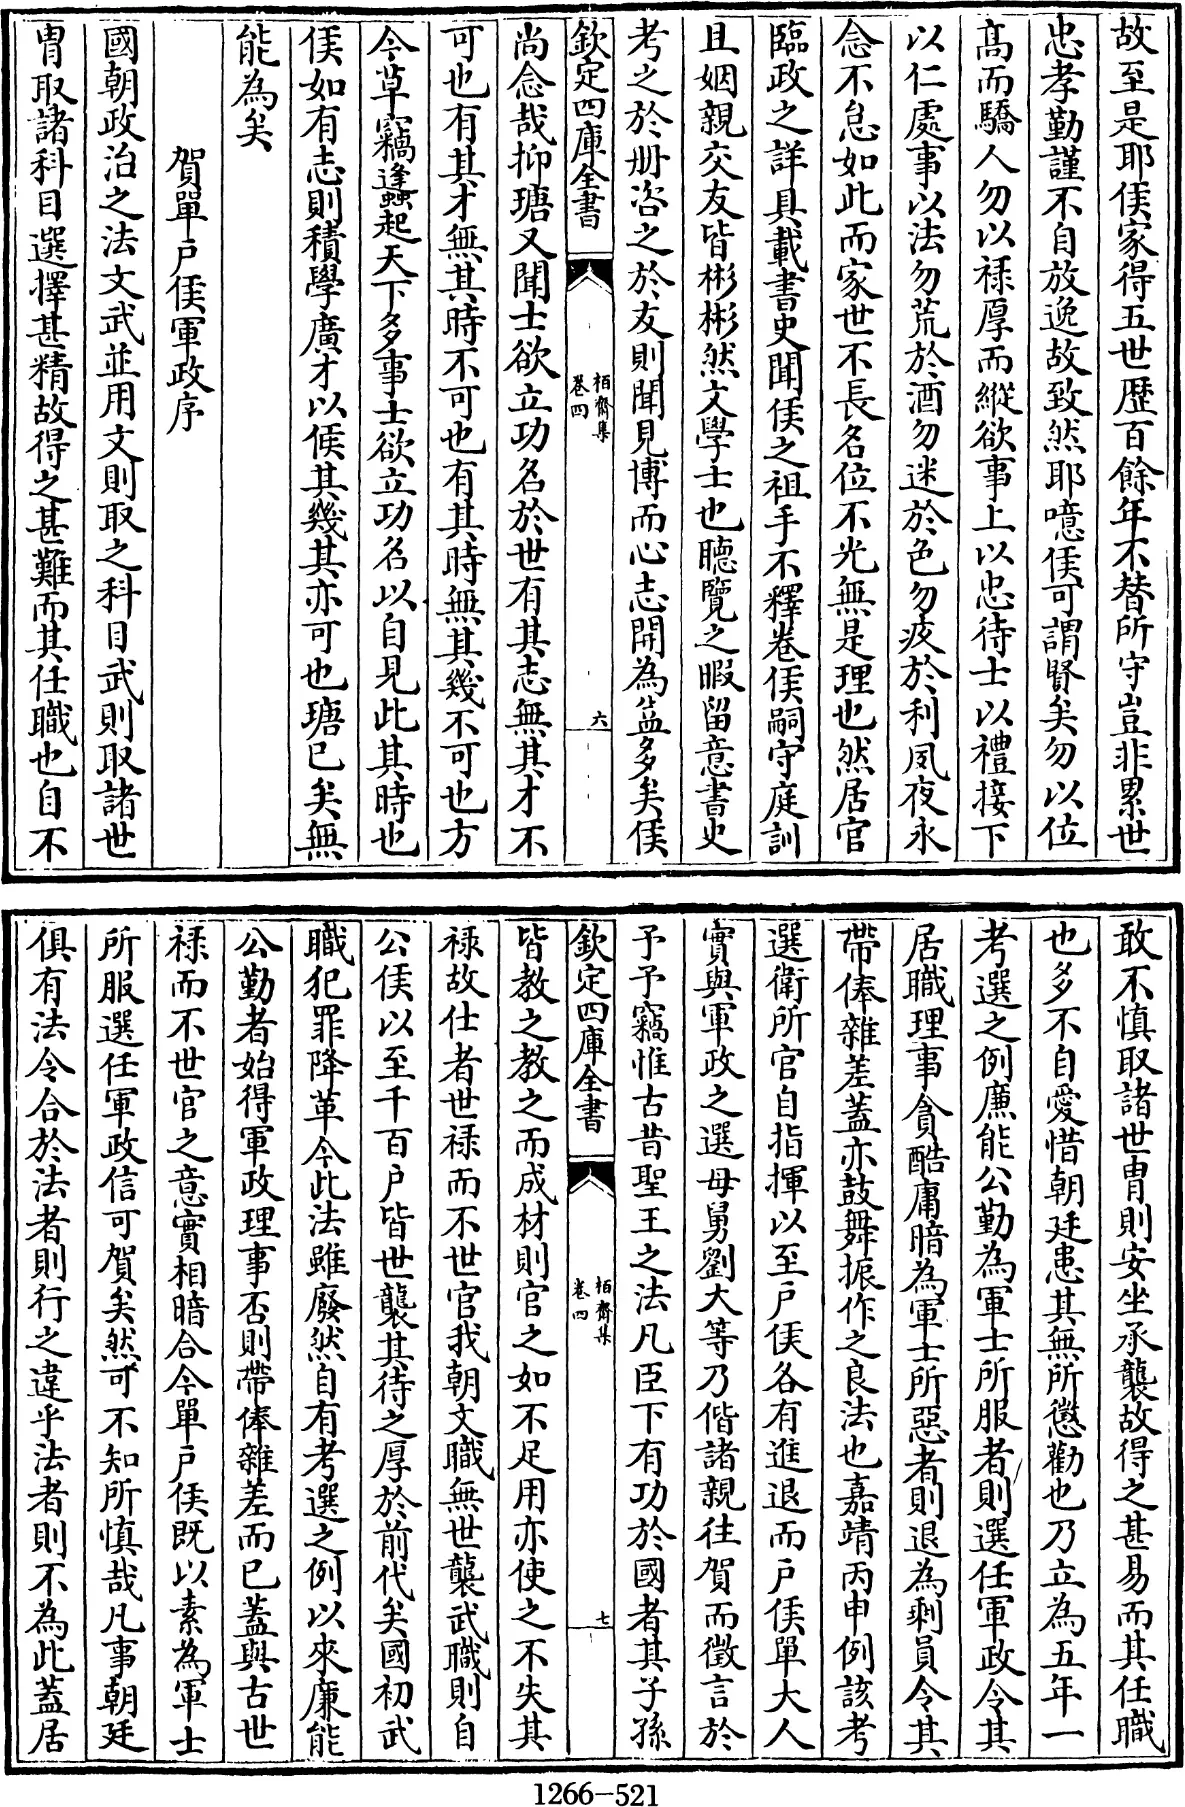 故至是耶侯家得五世歴百餘年不替所守豈非累世
忠孝勤謹不自放逸故致然耶噫侯可謂賢矣勿以位
髙而驕人勿以禄厚而縱欲事上以忠待士以禮接下
以仁處事以法勿荒於酒勿迷於色勿疚於利夙夜永
念不怠如此而家世不長名位不光無是理也然居官
臨政之詳具載書史聞侯之祖手不釋卷侯嗣守庭訓
且姻親交友皆彬彬然文學士也聴覽之暇留意書史
考之於册咨之於友則聞見博而心志開為益多矣侯
欽定四庫全書
栢齋集
卷四
六
尚念哉抑瑭又聞士欲立功名於世有其志無其才不
可也有其才無其時不可也有其時無其幾不可也方
今草竊蠭起天下多事士欲立功名以自見此其時也
侯如有志則積學廣才以俟其幾其亦可也瑭已矣無
能為矣
賀單户侯軍政序
國朝政治之法文武並用文則取之科目武則取諸世
胄取諸科目選擇甚精故得之甚難而其任職也自不
敢不慎取諸世胄則安坐承襲故得之甚易而其任職
也多不自愛惜朝廷患其無所懲勸也乃立為五年一
考選之例廉能公勤為軍士所服者則選任軍政令其
居職理事貪酷庸暗為軍士所惡者則退為剩員令其
帶俸雜差蓋亦鼓舞振作之良法也嘉靖丙申例該考
選衛所官自指揮以至户侯各有進退而户侯單大人
實與軍政之選母舅劉大等乃偕諸親往賀而徵言於
予予竊惟古昔聖王之法凡臣下有功於國者其子孫
欽定四庫全書
栢齋集
卷四
七
皆教之教之而成材則官之如不足用亦使之不失其
禄故仕者世禄而不世官我朝文職無世襲武職則自
公侯以至千百户皆世襲其待之厚於前代矣國初武
職犯罪降革今此法雖廢然自有考選之例以來廉能
公勤者始得軍政理事否則帶俸雜差而已蓋與古世
禄而不世官之意實相暗合今單户侯既以素為軍士
所服選任軍政信可賀矣然可不知所慎哉凡事朝廷
俱有法令合於法者則行之違乎法者則不為此蓋居
1266-521